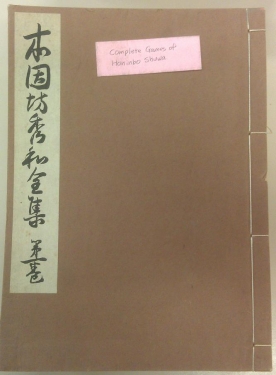 本因坊秀和全集 第壹巻
Complete Games of
Honinbo Shuwa